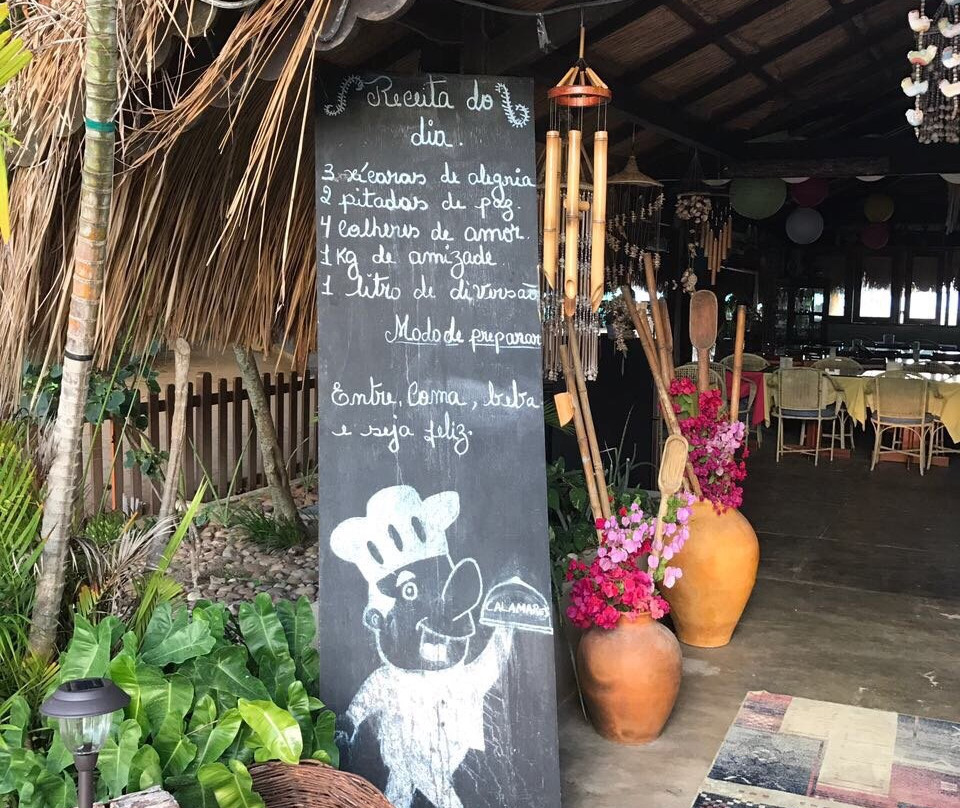 Receita do
dia.
3 xícaras de alegria
2 pitadas de paz.
4 Colheres de amor.
1 Kg de amizade
1 litro de diversão
Modo de preparar
Entre, Coma, beba
e seja feliz.
CALAMARES